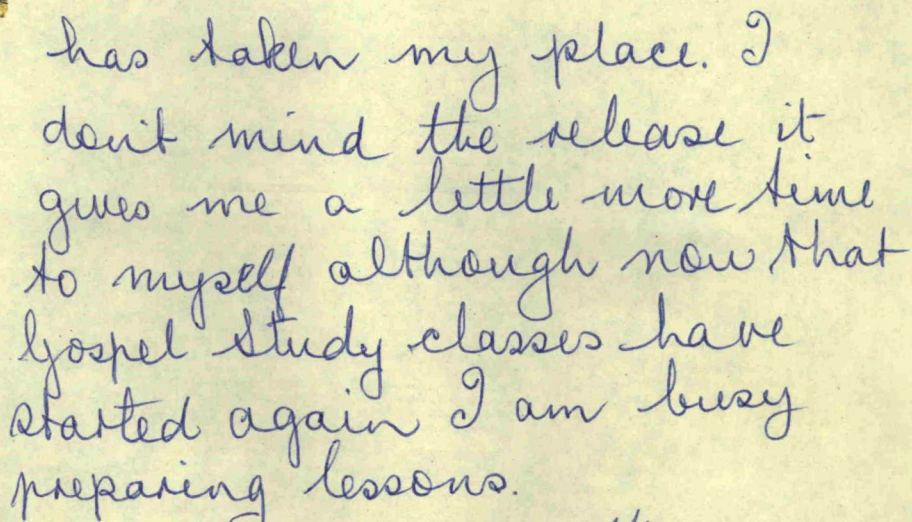 has taken my place. I
don't mind the release it
gives me a little more time
to myself although now that
Gospel Study classes have
started again I am busy
preparing lessons.